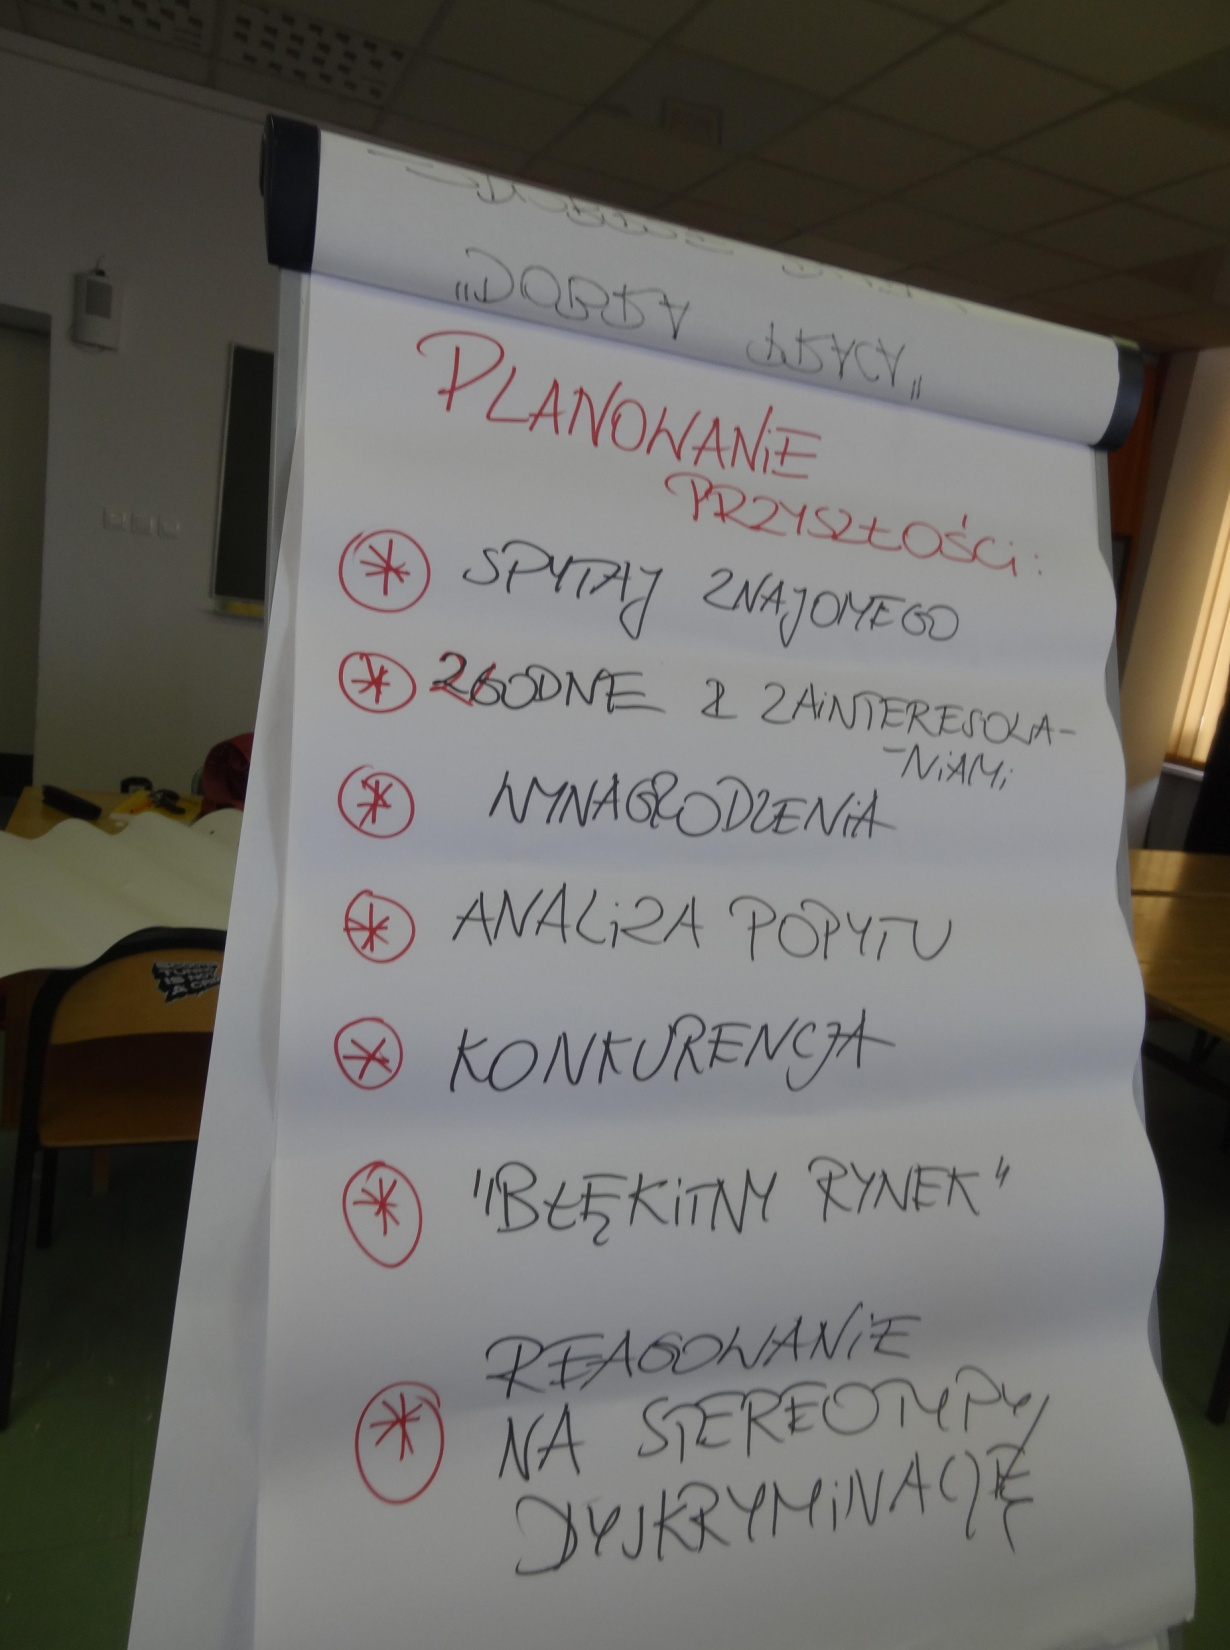 PLANOWANIE
PRZYSZŁOŚCi:
SPYTAJ ZNAJOMEGO
ZGODNE Z ZAiNTERESOWA-
-NiAMi
WYNAGRODZENiA
ANALiZA POPYTU
KONKURENCJA
"BŁĘKiTNY RYNEK"
REAGOWANiE
NA STEREOTYPY/
DYSKRYMiNACJĘ